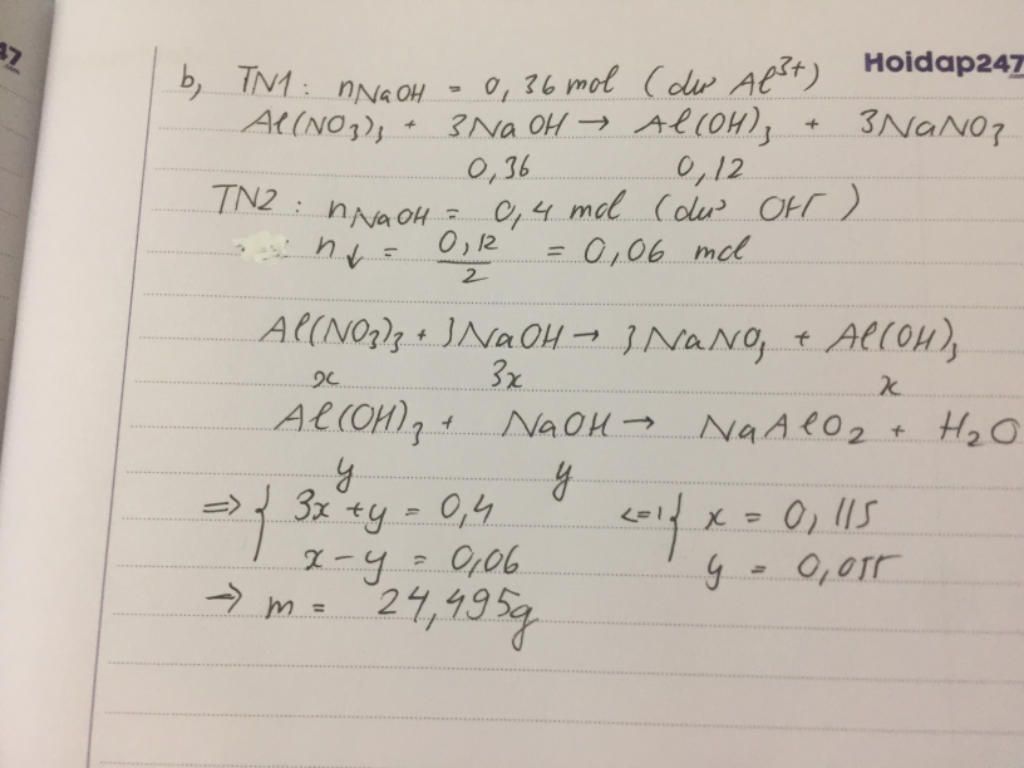 47
Hoidap247
b, TN1: nNaOH = 0,36 mol (dư Al³⁺)
Al(NO₃)₃ + 3NaOH → Al(OH)₃ + 3NaNO₃
0,36 0,12
TN2: nNaOH = 0,4 mol (dư OH⁻)
n↓ = 0,12/2 = 0,06 mol
Al(NO₃)₃ + 3NaOH → 3NaNO₃ + Al(OH)₃
x 3x x
Al(OH)₃ + NaOH → NaAlO₂ + H₂O
y y
=> { 3x + y = 0,4 <=> { x = 0,115
x - y = 0,06 y = 0,055
→ m = 24,495g